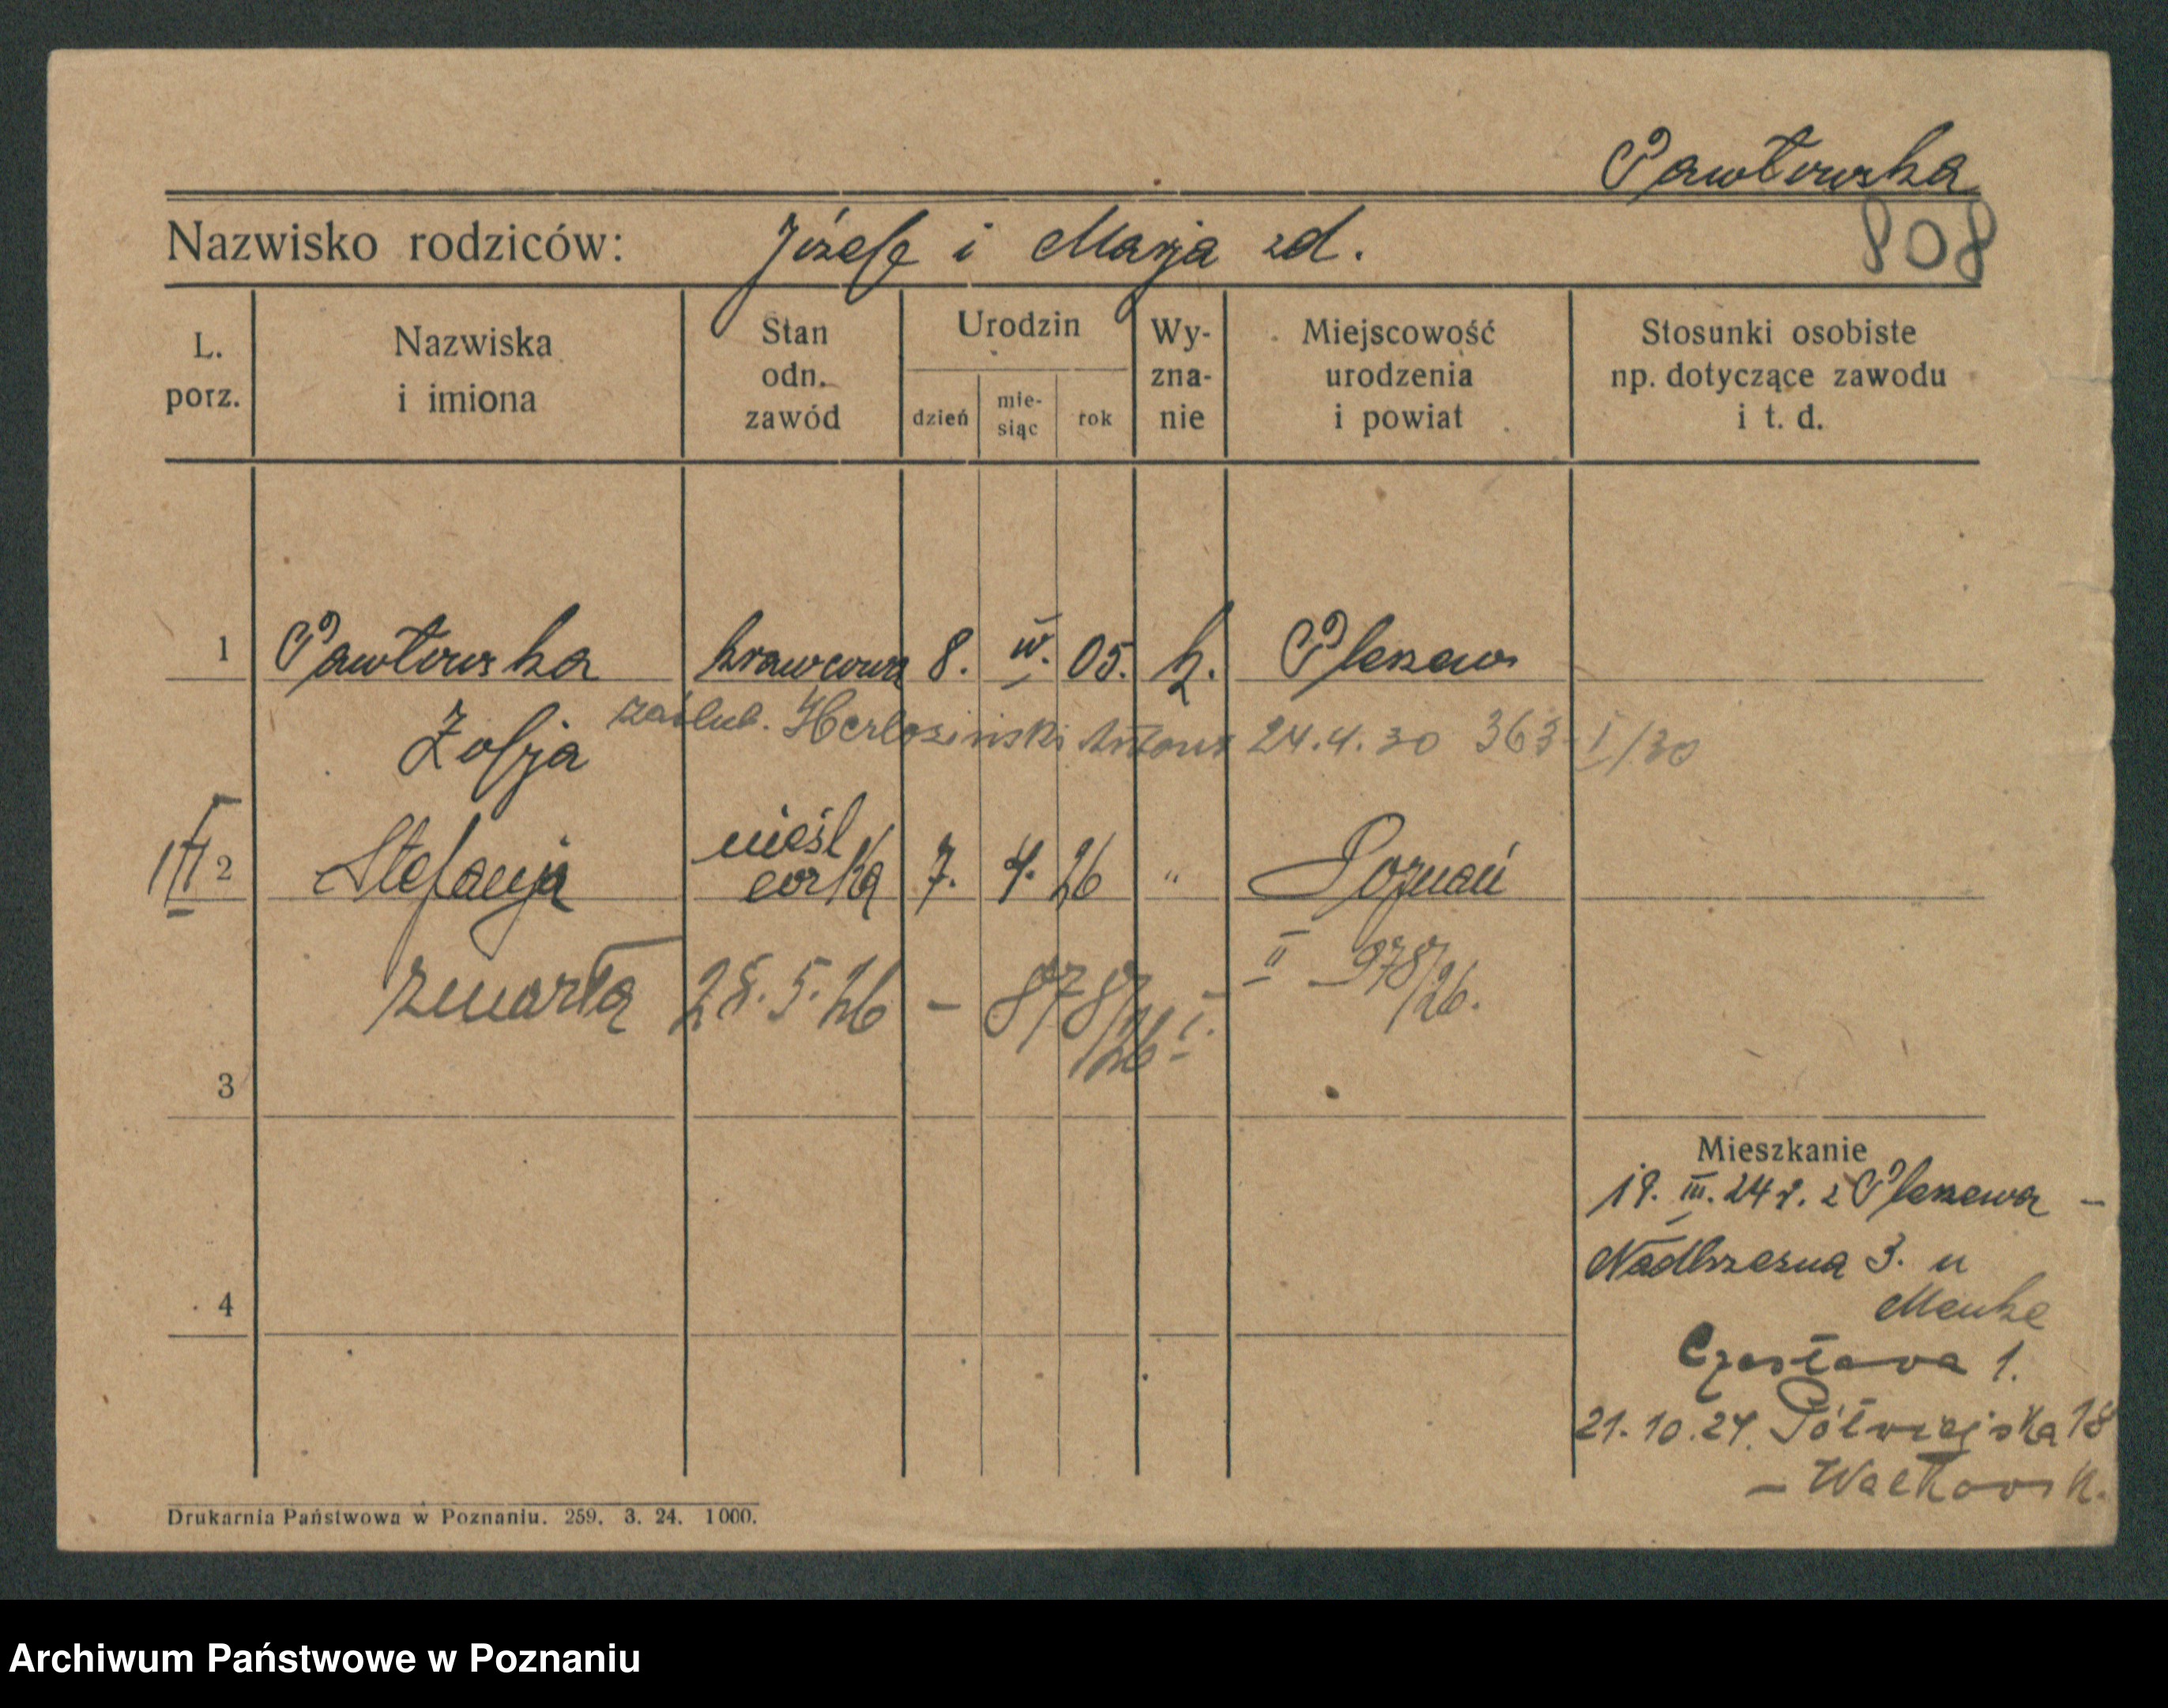 Pawłowska
808
Nazwisko rodziców: Józef i Marja zd.
L. porz.
Nazwiska i imiona
Stan odn. zawód
Urodzin
dzień
mie-siąc
rok
Wy-zna-nie
Miejscowość urodzenia i powiat
Stosunki osobiste np. dotyczące zawodu i t. d.
1 Pawłowska krawcowa 8. IV. 05. k. Pleszew
Zofja zaślub. 24.4.30 363 I/30
III 2 Stefanja nieśl córka 7. 4. 26 " Poznań
zmarła 28.5.26 – 878/26 I. II – 978/26.
3
4
Mieszkanie
19. III. 24 r. z Pleszewa –
Nadbrzeżna 3. u
Menke
Czesława 1.
21.10.24. Półwiejska 18
Drukarnia Państwowa w Poznaniu. 259. 3. 24. 1000.
Archiwum Państwowe w Poznaniu